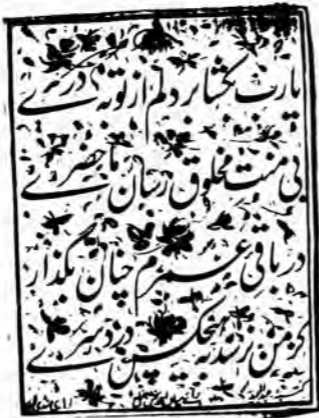 یارب بگشا بر دلم از توبه دری
بی منت مخلوق رسان ماحضری
در باقی عمرم چنان بگذار
کز من نرسد به هیچکس دردسری